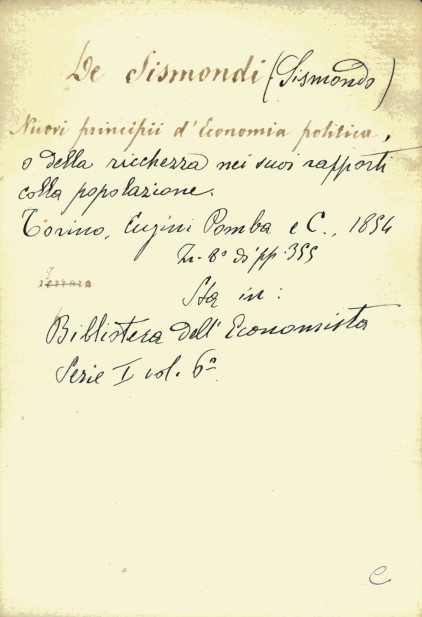 De Sismondi (Sismondo)
Nuovi principii d'Economia politica,
o della ricchezza nei suoi rapporti
colla popolazione.
Torino, Cugini Pomba e C., 1854
In-8º di pp. 355
Ferrara
Sta in:
Biblioteca dell'Economista
Serie I vol. 6º
C